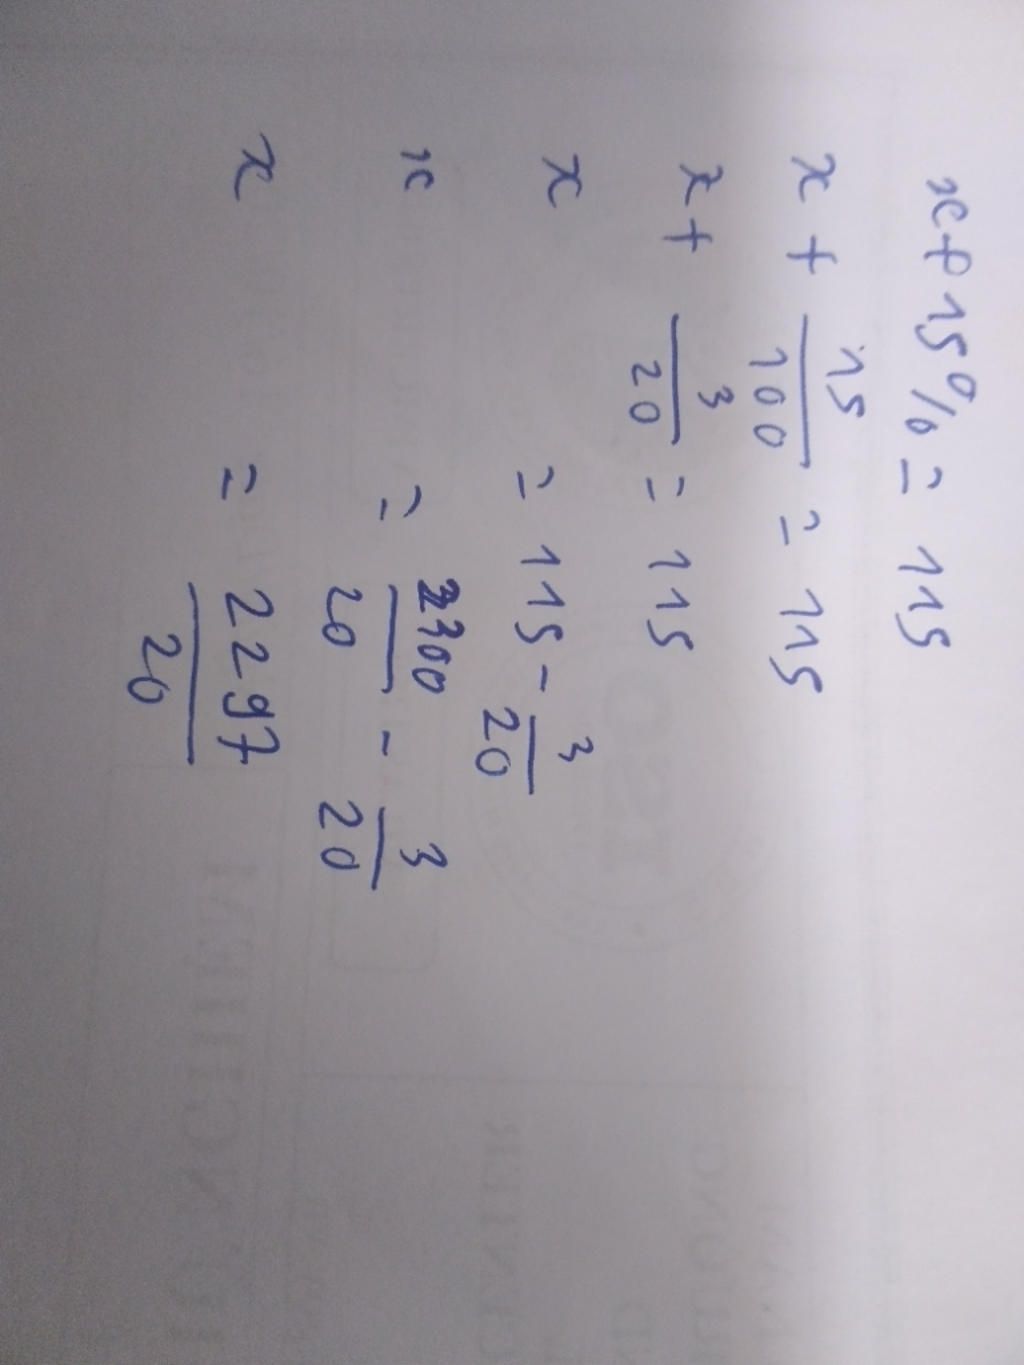 x + 15% = 115
x + 15/100 = 115
x + 3/20 = 115
x = 115 - 3/20
x = 2300/20 - 3/20
x = 2297/20